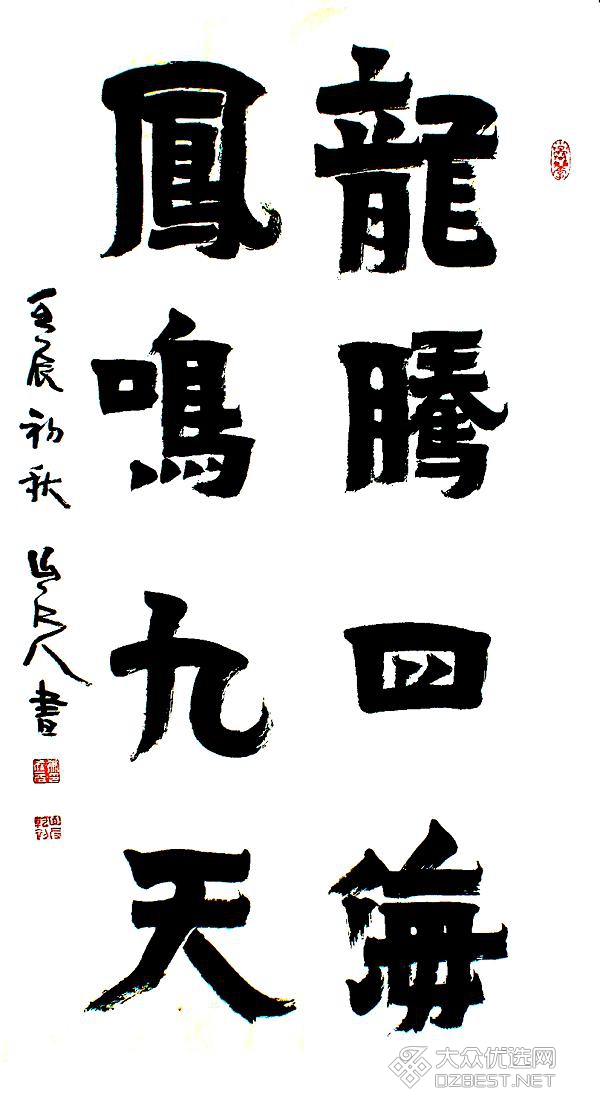 龍騰四海
鳳鳴九天
壬辰初秋 山人書
大众优选网
OZBEST.NET